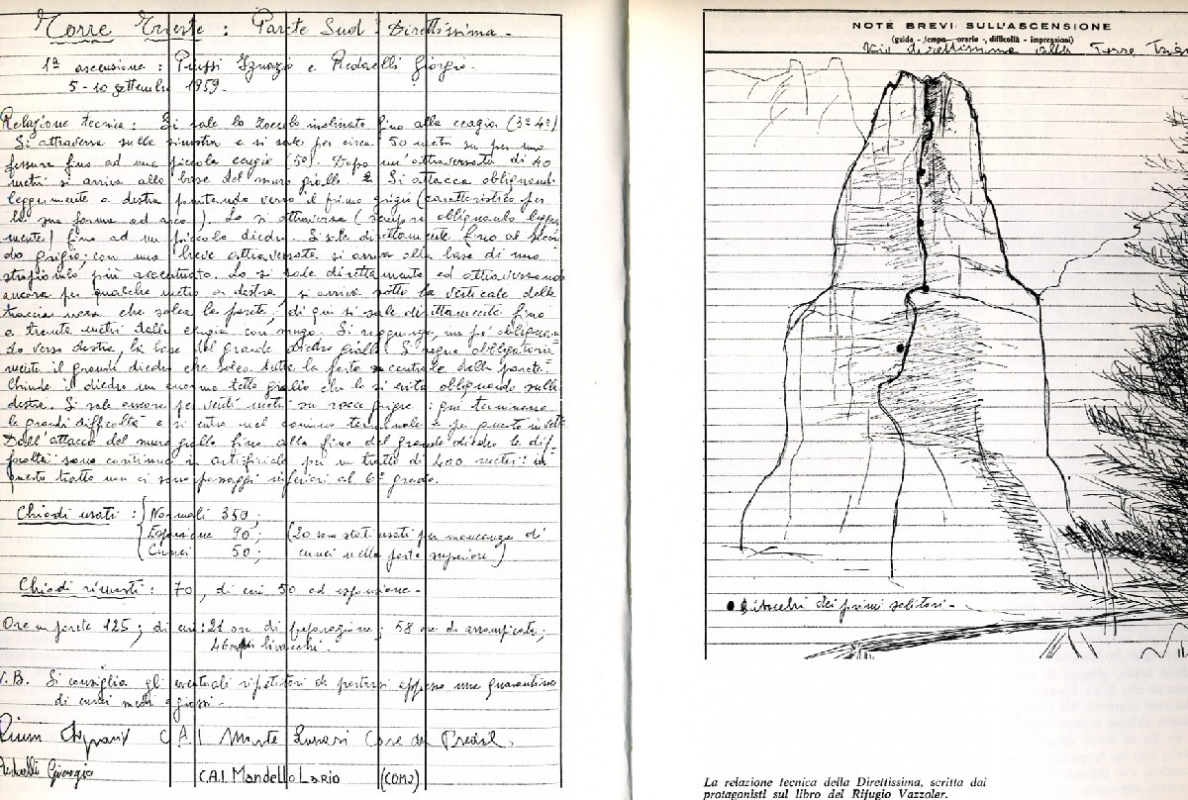 Torre Trieste : Parete Sud - Direttissima -
1ª ascensione : Piussi Ignazio e Redaelli Giorgio -
5 - 10 settembre 1959 -
Relazione tecnica : Si sale lo zoccolo inclinato fino alla cengia (3º 4º)
Si attraversa sulla sinistra e si sale per circa 50 metri su per una
fessura fino ad una piccola cengia (5º). Dopo un'attraversata di 40
metri si arriva alla base del muro giallo Si attacca obliquando
leggermente a destra puntando verso il primo grigio (caratteristico per
la sua forma ad arco). Lo si attraversa (sempre obliquando legger
mente) fino ad un piccolo diedro. Si sale direttamente fino al secon
do grigio; con una breve attraversata si arriva alla base di uno
strapiombo più accentuato. Lo si sale direttamente ed attraversando
ancora per qualche metro a destra, si arriva sotto la verticale della
traccia nera che solca la parete; di qui si sale direttamente fino
a trenta metri dalla cengia con mugo. Si raggiunge, un po' obliquan
do verso destra, la base del grande diedro giallo. Si segue obbligatoria
mente il grande diedro che solca tutta la parte centrale della parete.
Chiude il diedro un enorme tetto giallo che lo si evita obliquando sulla
destra. Si sale ancora per venti metri su rocce grigie : qui terminano
le grandi difficoltà e si entra nel camino terminale e per questo in vetta
Dall'attacco del muro giallo fino alla fine del grande diedro le dif
ficoltà sono continue in artificiale per un tratto di 400 metri : in
questo tratto non ci sono passaggi inferiori al 6º grado.
Chiodi usati : Normali 350;
Espansione 90; (20 sono stati usati per mancanza di
Cunei 50; cunei nella parte superiore)
Chiodi rimasti : 70, di cui 50 ad espansione -
Ore in parete 125 ; di cui : 21 ore di preparazione ; 58 ore di arrampicata;
46 bivacchi.
N.B. Si consiglia gli eventuali ripetitori di portarsi appresso una quarantina
di cunei medi e grossi -
Piussi Ignazio C.A.I Monte Lussari Cave del Predil.
Redaelli Giorgio C.A.I. Mandello Lario (COMO)
NOTE BREVI SULL'ASCENSIONE
(guida - tempo - orario - difficoltà - impressioni)
Via direttissima alla Torre Trieste
● Bivacchi dei primi salitori -
La relazione tecnica della Direttissima, scritta dai
protagonisti sul libro del Rifugio Vazzoler.